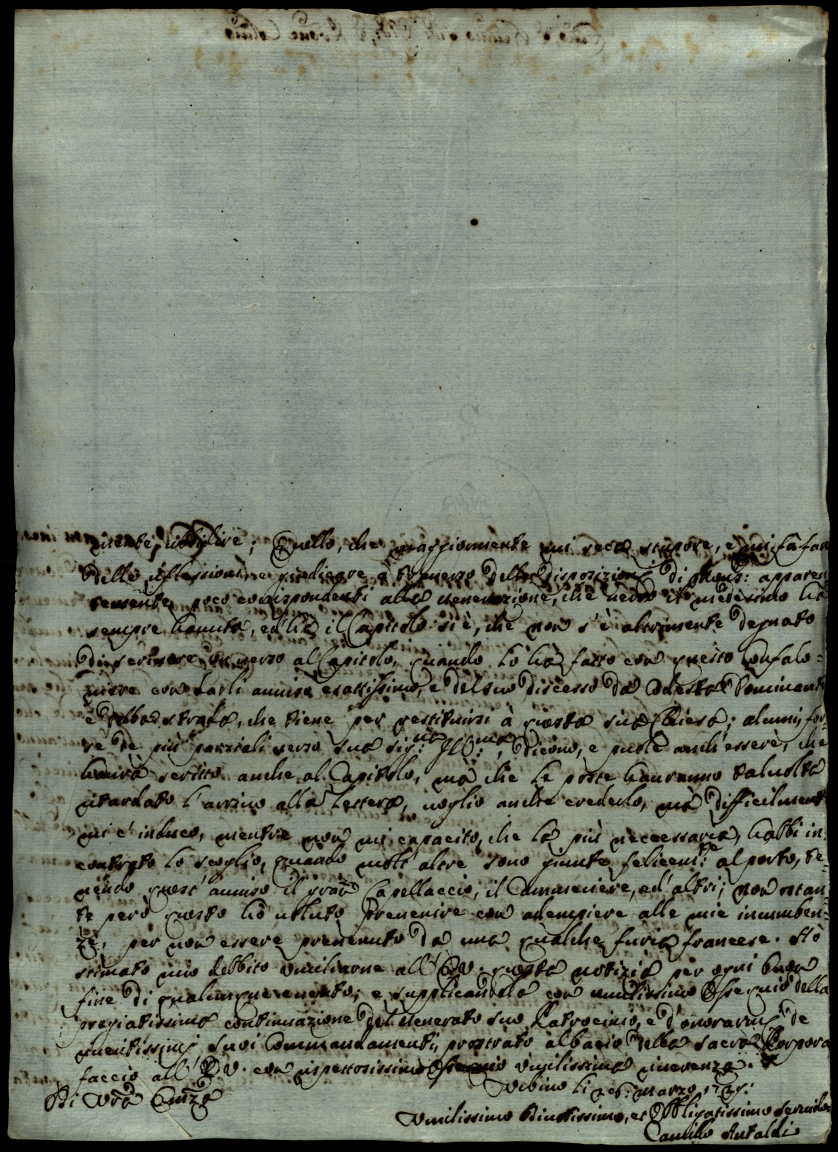 Quello, che maggiormente mi reca stupore, e mi fa far
delle riflessioni, e disposizioni di Mons: apparen
temente poco corrispondenti alla venerazione, che verso il medesimo hà
sempre havuta, ed hà il Capitolo si è, che non s'è altrimente degnato
di scrivere un verso al Capitolo, quando lò hà fatto con questo Confalo=
niere con darli avviso esattissimo, e del suo discesso da codesta Dominante
e della strada, che tiene per restituirsi à questa sua Chiesa; alcuni, for
se de più parziali verso sua Sig:ria Ill:ma, dicono, e puol anch'essere, che
haurà scritto anche al Capitolo, mà che le poste hauranno taluolta
ritardato l'arrivo alla lettera, voglio anche crederlo, mà difficilmente
mi c'induco, mentre non mi capacito, che la più neccessaria, habbi in=
contrato lo scoglio, quando molt'altre sono giunte felicem:te al porto, te=
nendo quest'avviso il Capellaccio, il ed'altri; non ostan
te però questo hò voluto prevenire con adempiere alle mie incumben=
ze, per non essere prevenuto da una qualche furia francese. Hò
stimato mio debbito umiliarne all'E.V. questa notizia per ogni buon
fine di qualunque evento; e supplicandola con umilissimo ossequio della
pregiatissima continuazione del venerato suo Patrocinio, e d'onorarmi de
meritissimi suoi commandamenti, prostrato al bacio della sacra Porpora
faccio all'E.V. con rispettosissimo ossequio umilissima riverenza.
Urbino li 26: marzo
Di Vrã Emza
Umilissimo Divotissimo, et Obligatissimo Servitore
Camillo Antaldi